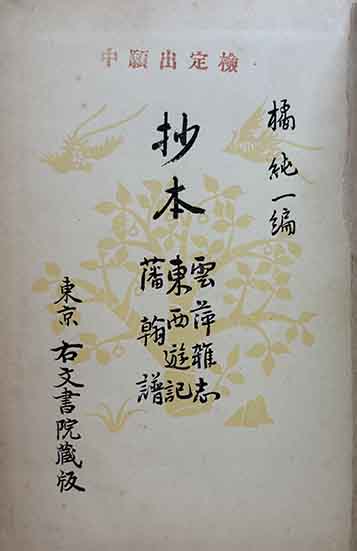 検定出願中
橘純一編
抄本
雲萍雑志
東西遊記
藩翰譜
東京 右文書院蔵版